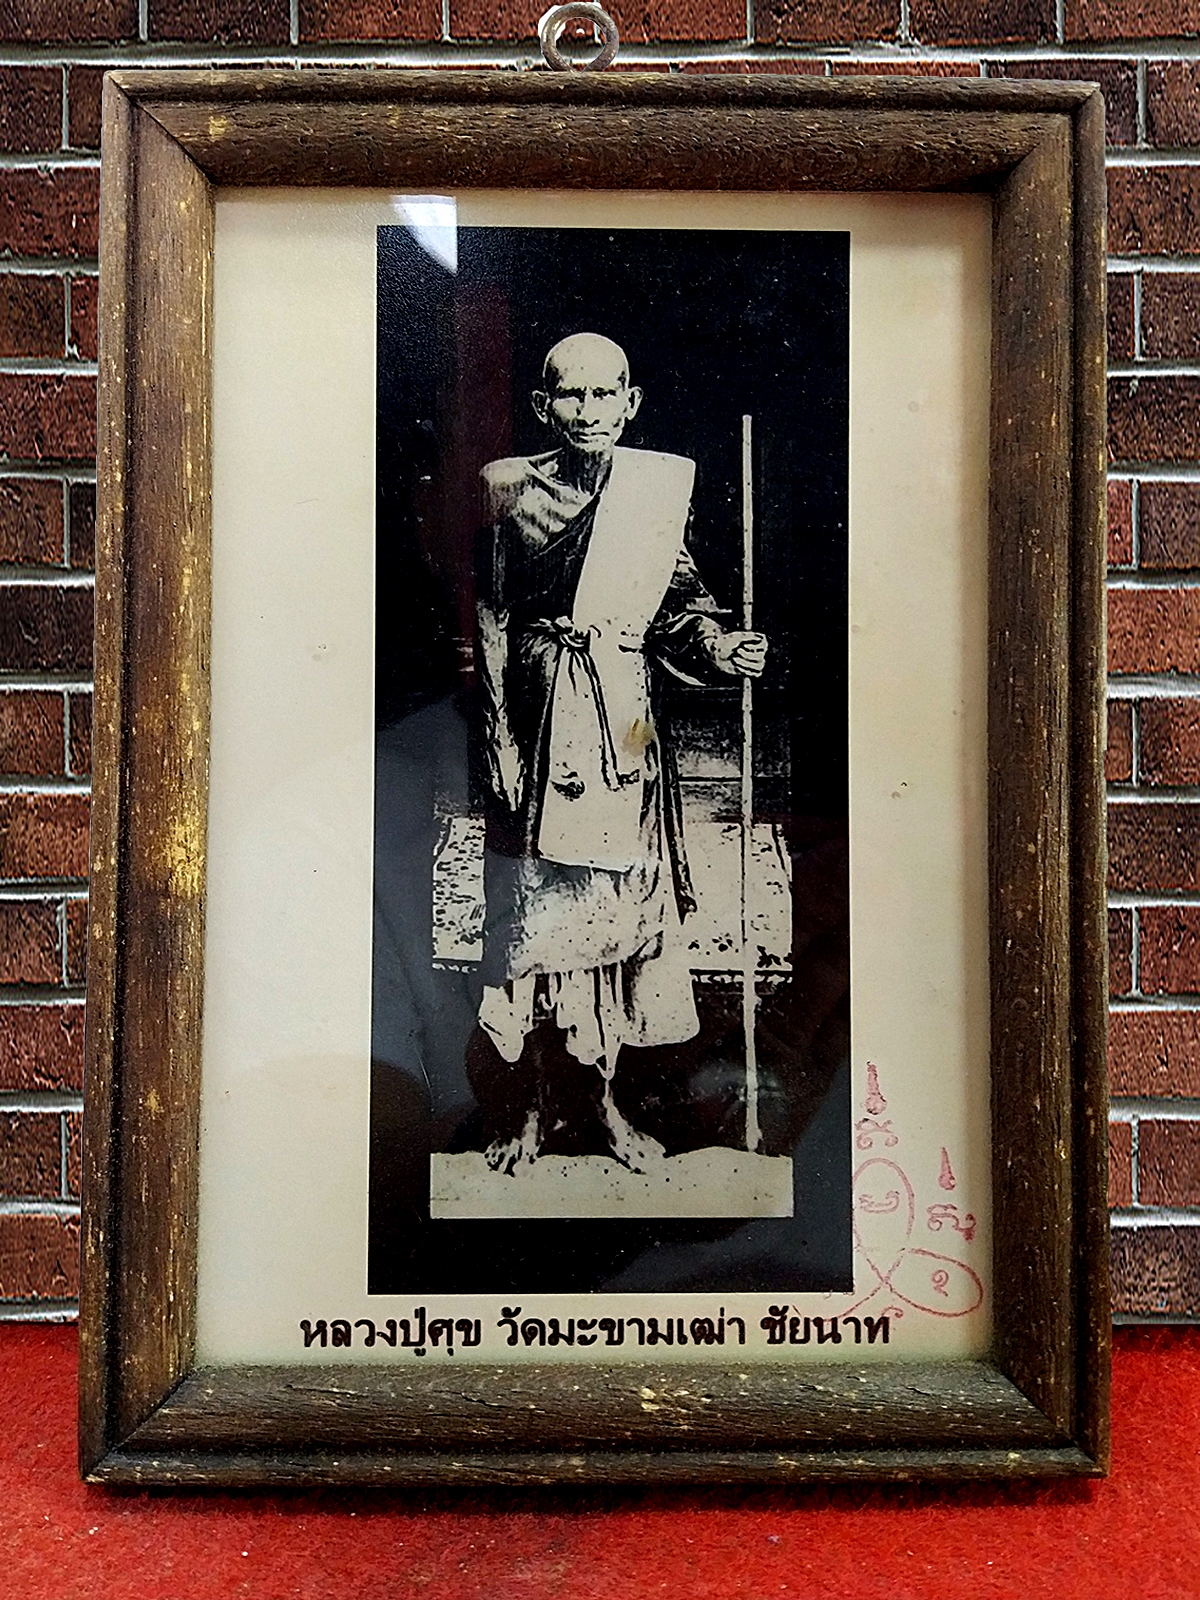 หลวงปู่ศุข วัดมะขามเฒ่า ชัยนาท